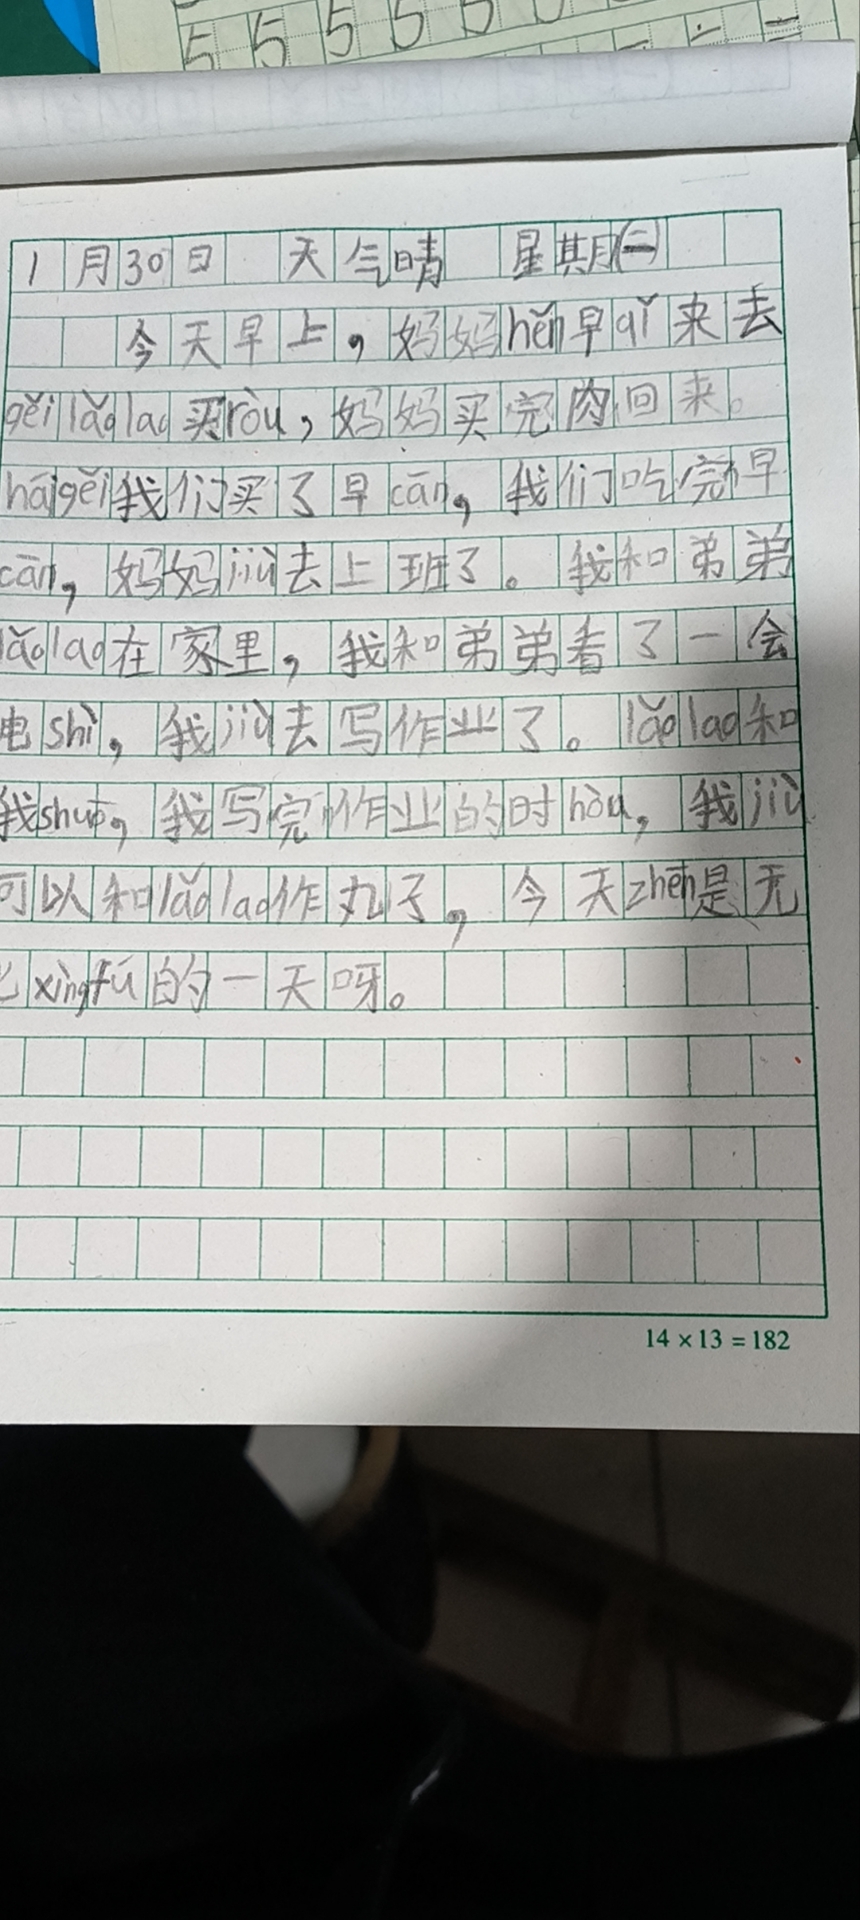 5 5 5 5 5
1月30日 天气晴 星期(二)
今天早上，妈妈hěn早qǐ来去
gěi lǎo lao 买ròu，妈妈买完肉回来。
hái gěi 我们买了早cān，我们吃完早
cān，妈妈jiù去上班了。我和弟弟
lǎo lao在家里，我和弟弟看了一会
电shì，我jiù去写作业了。lǎo lao和
我shuō，我写完作业的时hòu，我jiù
可以和lǎo lao作丸子，今天zhēn是无
比xìngfú的一天呀。
14×13=182